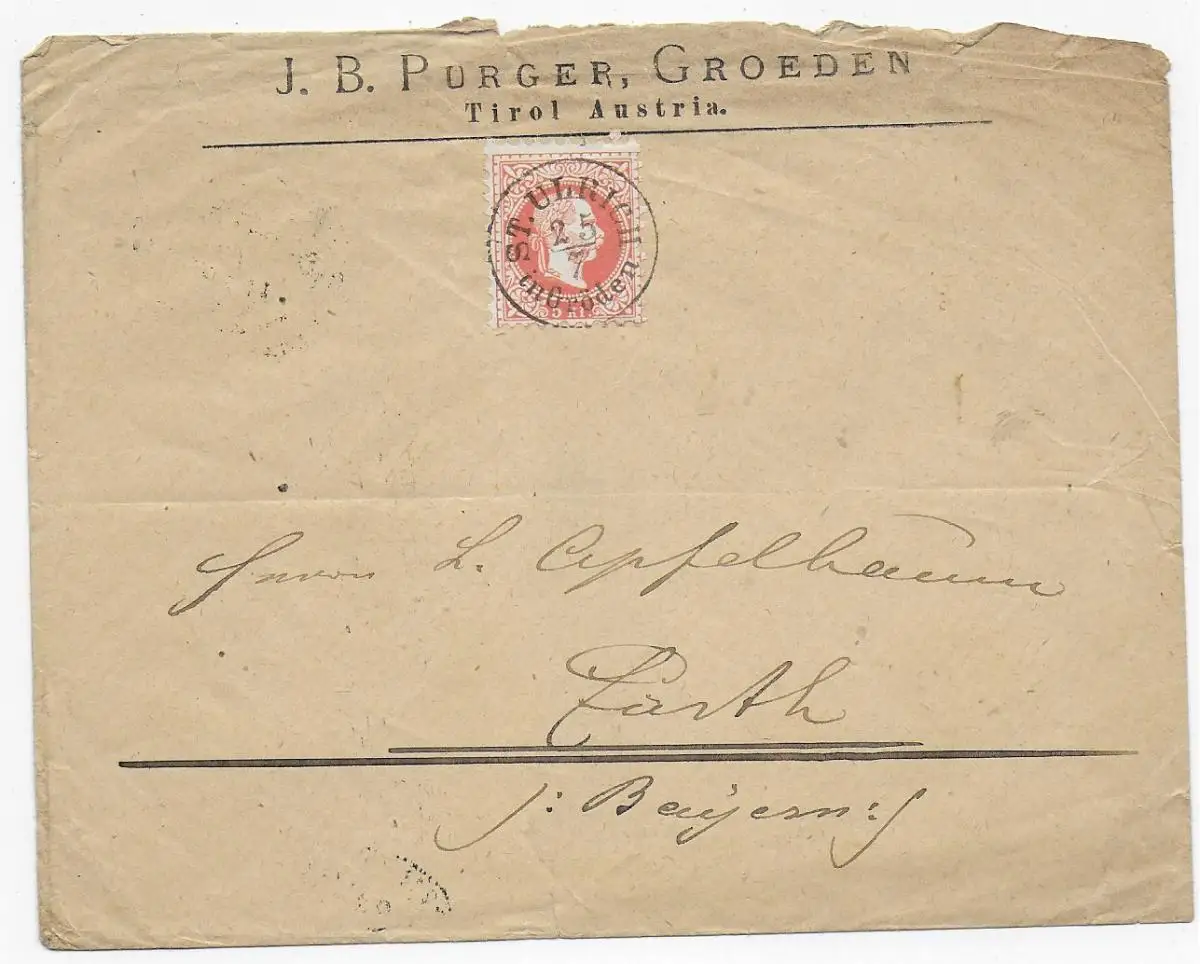 J. B. PURGER, GROEDEN
Tirol Austria.
ST. ULRICH
25
7
in Gröden
5 kr.
Herrn L. Apfelbaum
Fürth
/: Bayern :/